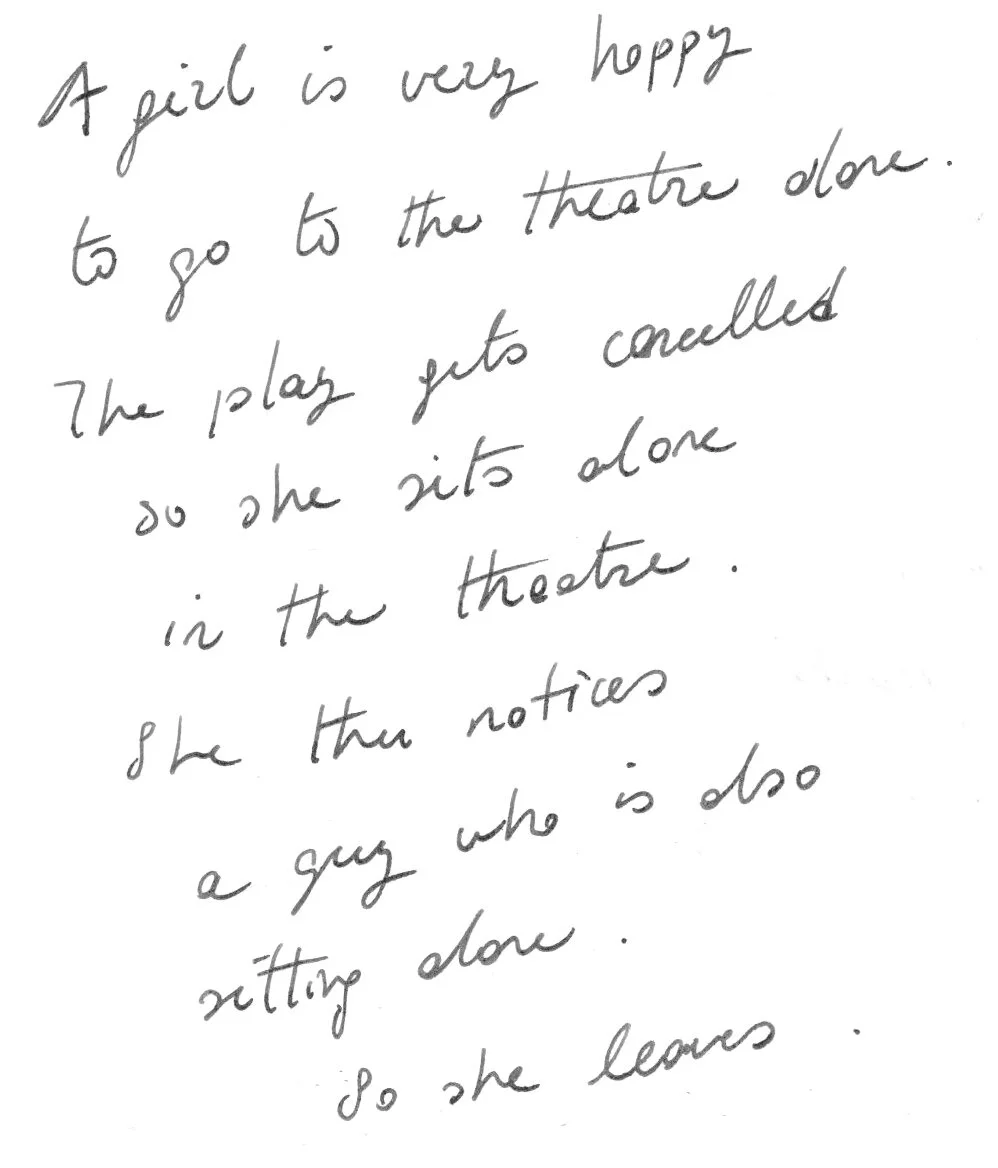 A girl is very happy
to go to the theatre alone.
The play gets cancelled
so she sits alone
in the theatre.
She then notices
a guy who is also
sitting alone.
So she leaves.